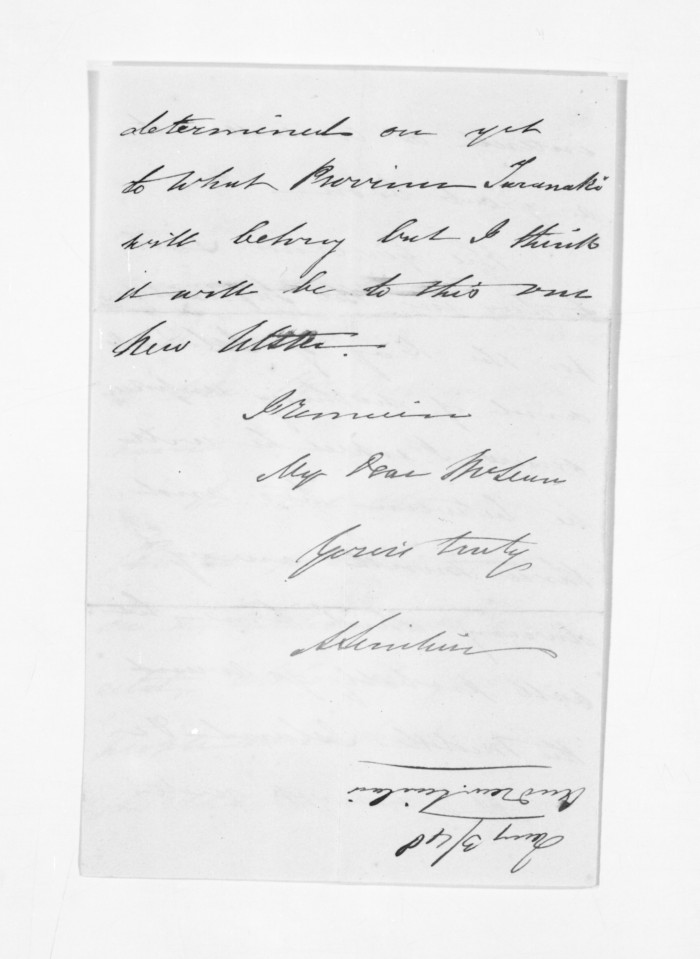 determined on yet
to what Province Taranaki
will belong but I think
it will be to this one
New Ulster.
I remain
My Dear McLean
Yours truly
A Sinclair
Andrew Sinclair
Jany 3/48